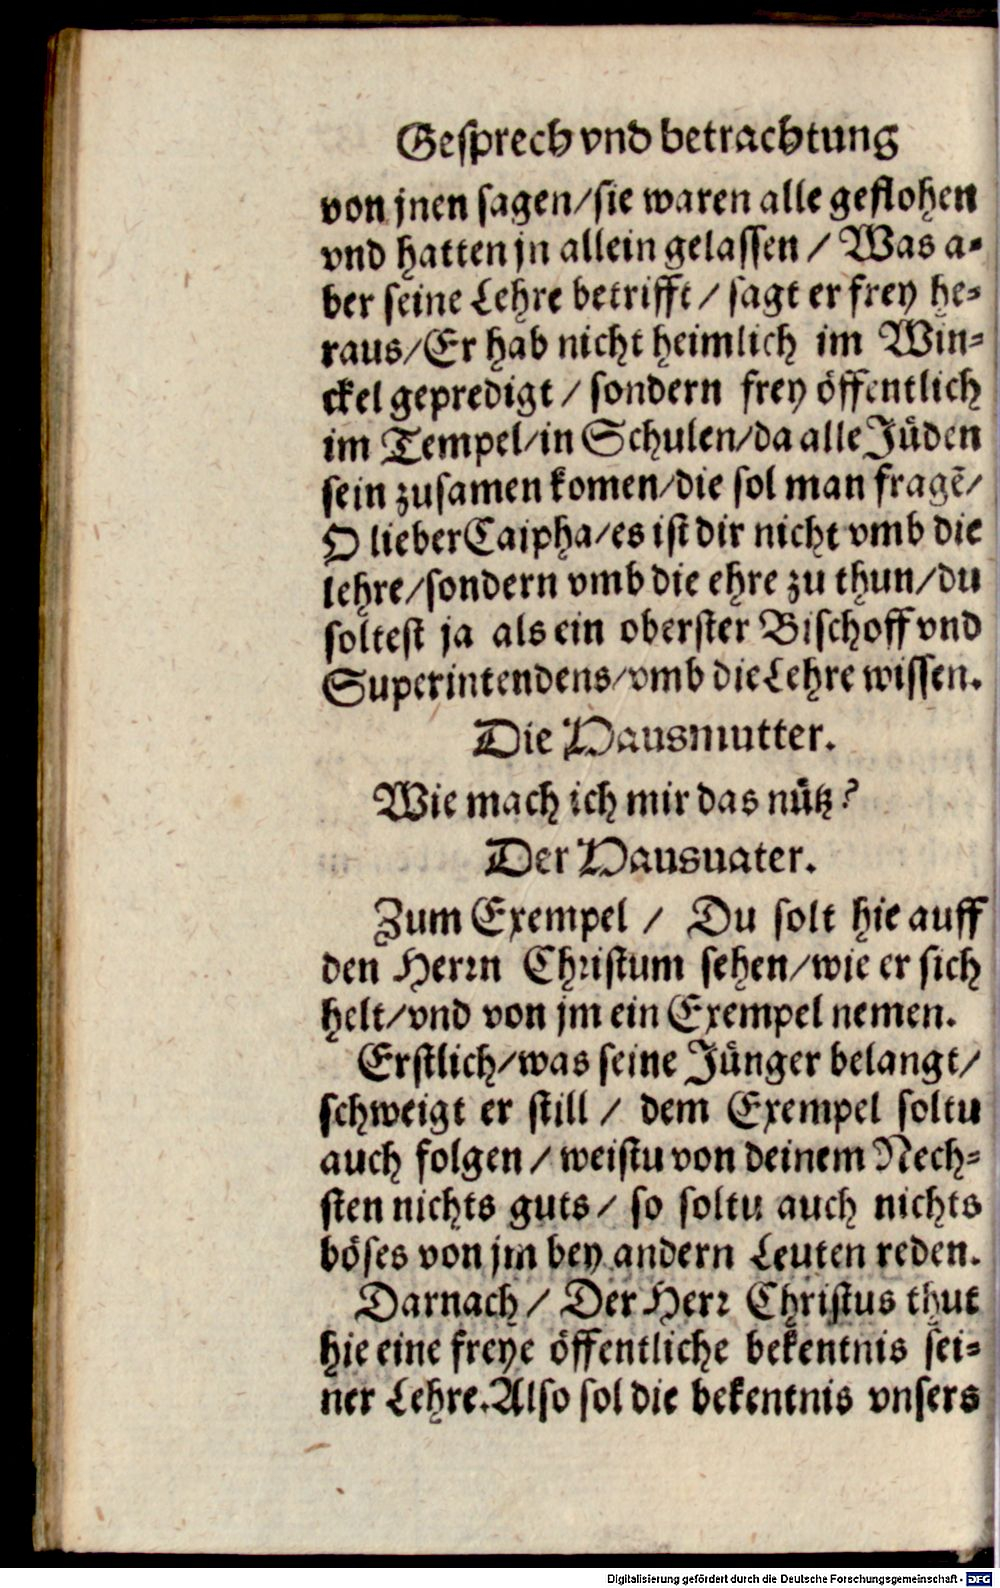 Gesprech vnd betrachtung
von jnen sagen/sie waren alle geflohen
vnd hatten jn allein gelassen / Was a-
ber seine Lehre betrifft / sagt er frey he-
raus/Er hab nicht heimlich im Win-
ckel gepredigt / sondern frey öffentlich
im Tempel/in Schulen/da alle Jüden
sein zusamen komen/die sol man fragē/
O lieber Caipha/es ist dir nicht vmb die
lehre/sondern vmb die ehre zu thun/du
soltest ja als ein oberster Bischoff vnd
Superintendens/vmb die Lehre wissen.
Die Hausmutter.
Wie mach ich mir das nütz?
Der Hausuater.
Zum Exempel / Du solt hie auff
den Herrn Christum sehen/wie er sich
helt/vnd von jm ein Exempel nemen.
Erstlich/was seine Jünger belangt/
schweigt er still / dem Exempel soltu
auch folgen / weistu von deinem Nech-
sten nichts guts / so soltu auch nichts
böses von jm bey andern Leuten reden.
Darnach / Der Herr Christus thut
hie eine freye öffentliche bekentnis sei-
ner Lehre. Also sol die bekentnis vnsers
Digitalisierung gefördert durch die Deutsche Forschungsgemeinschaft - DFG